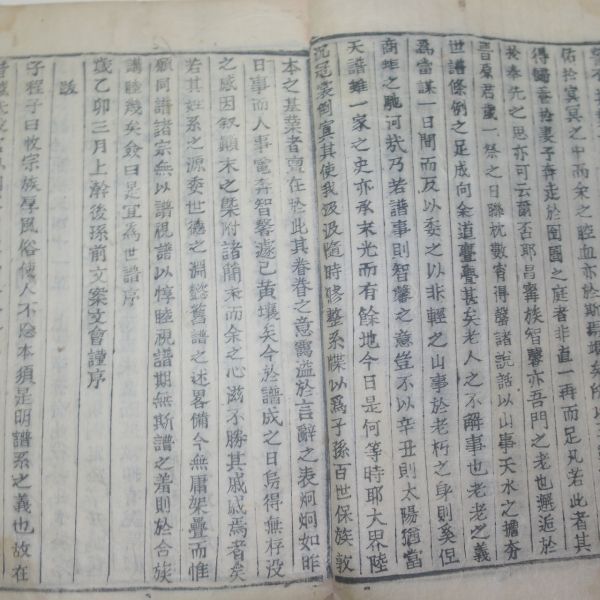 佑於冥冥之中而余之腔血亦於斯
得歸吾於妻子奔走於園囿之庭者非直一再而足凡若此者其
於奉先之思亦可云爾否耶昌寗族智馨亦吾門之老也邂逅於
晋原君歲一祭之日聯枕數宵得馨諸說話以山事天水之擔夯
世譜條例之足成向余道亹亹甚矣老人之不解事也老老之義
爲當謀一日間而反以委之以非輕之山事於老朽之身則奚但
商蚷之馳河㢤乃若譜事則智馨之意豈不以辛丑則太陽猶當
天譜雖一家之史亦承末光而有餘地今日是何等時耶大界陸
沉冠裳倒寘其使我汲汲隨時修整系牒以爲子孫百世保族敦
本之基業者亶在於此其眷眷之意藹溢於言辭之表炯炯如昨
日事而人事電奔智馨遽已黃壤矣今於譜成之日烏得無存没
之感因叙顚末之槩附諸簡末而余之心滋不勝其戚戚焉者矣
若其姓系之源委世德之淵懿舊譜之述畧備今無庸架疊而惟
願同譜諸宗無以譜視譜以惇睦視譜期無斯譜之羞則於合族
講睦幾矣僉曰是宜為世譜序
歲乙卯三月上澣後孫前文案文會謹序
跋
子程子曰收宗族學風俗使人不忘本須是明譜系之義也故在